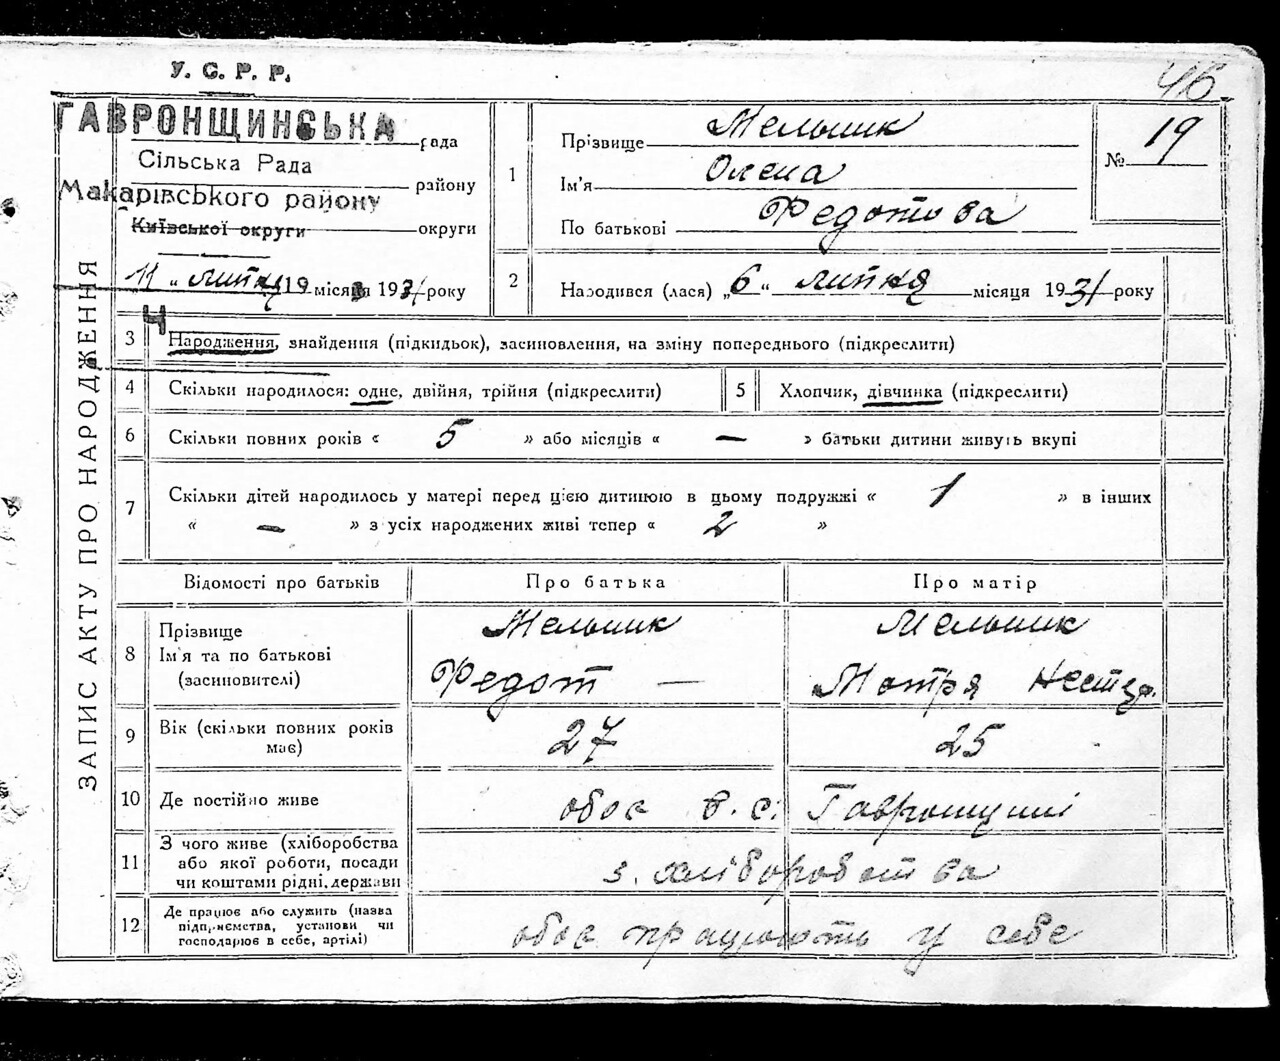 46
У. С. Р. Р.
ГАВРОНЩИНСЬКА рада
Сільська Рада району
Макарівського району
Київської округи округи
„11" липня 19 місяця 1931 року
ЗАПИС АКТУ ПРО НАРОДЖЕННЯ
1 Прізвище Мельник
Ім'я Олена
По батькові Федотова
№ 19
2 Народився (лася) „6" липня місяця 1931 року
3 Народження, знайдення (підкидьок), засиновлення, на зміну попереднього (підкреслити)
4 Скільки народилося: одне, двійня, трійня (підкреслити) 5 Хлопчик, дівчинка (підкреслити)
6 Скільки повних років « 5 » або місяців « — » батьки дитини живуть вкупі
7 Скільки дітей народилось у матері перед цією дитиною в цьому подружжі « 1 » в інших
« — » з усіх народжених живі тепер « 2 »
Відомості про батьків Про батька Про матір
8 Прізвище Мельник Мельник
Ім'я та по батькові
(засиновителі) Федот — Мотря Нестер.
9 Вік (скільки повних років
має) 27 25
10 Де постійно живе обоє в. с. Гавронщині
11 З чого живе (хліборобства
або якої роботи, посади
чи коштами рідні, держави з. хліборобства
12 Де працює або служить (назва
підприємства, установи чи
господарює в себе, артілі) обоє працюють у себе